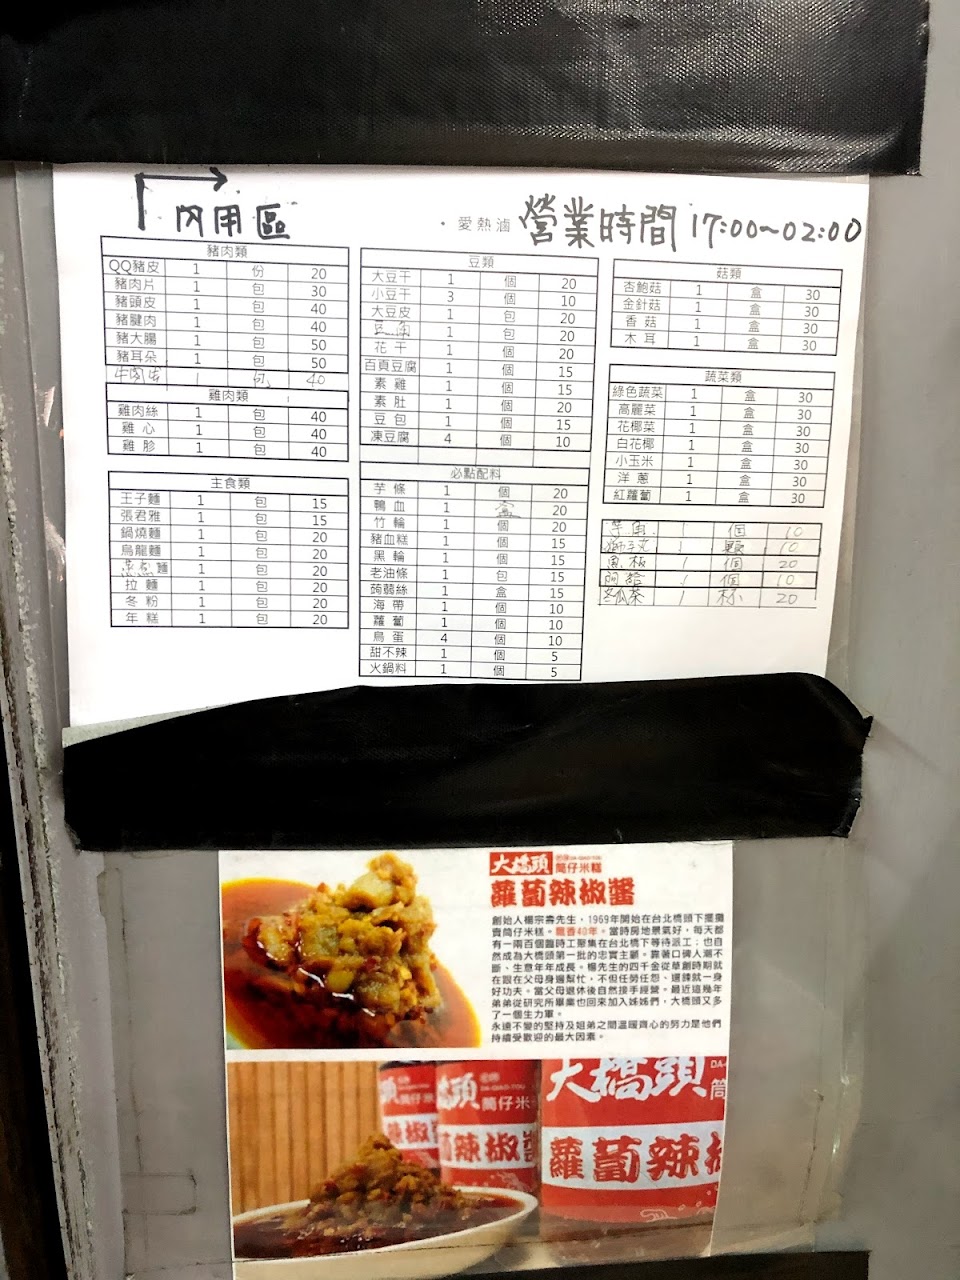 內用區
·愛熱滷 營業時間 17:00~02:00
豬肉類
QQ豬皮 1 份 20
豬肉片 1 包 30
豬頭皮 1 包 40
豬腱肉 1 包 40
豬大腸 1 包 50
豬耳朵 1 包 50
1 包 40
雞肉類
雞肉絲 1 包 40
雞心 1 包 40
雞胗 1 包 40
主食類
王子麵 1 包 15
張君雅 1 包 15
鍋燒麵 1 包 20
烏龍麵 1 包 20
蒸煎麵 1 包 20
拉麵 1 包 20
冬粉 1 包 20
年糕 1 包 20
豆類
大豆干 1 個 20
小豆干 3 個 10
大豆皮 1 包 20
1 包 20
花干 1 個 20
百頁豆腐 1 個 15
素雞 1 個 15
素肚 1 個 20
豆包 1 個 15
凍豆腐 4 個 10
必點配料
芋條 1 個 20
鴨血 1 盒 20
竹輪 1 個 20
豬血糕 1 個 15
黑輪 1 個 15
老油條 1 包 15
蒟蒻絲 1 盒 15
海帶 1 個 10
蘿蔔 1 個 10
鳥蛋 4 個 10
甜不辣 1 個 5
火鍋料 1 個 5
菇類
杏鮑菇 1 盒 30
金針菇 1 盒 30
香菇 1 盒 30
木耳 1 盒 30
蔬菜類
綠色蔬菜 1 盒 30
高麗菜 1 盒 30
花椰菜 1 盒 30
白花椰 1 盒 30
小玉米 1 盒 30
洋蔥 1 盒 30
紅蘿蔔 1 盒 30
芋角 1 個 10
獅子丸 1 顆 10
魚板 1 個 20
阿給 1 個 10
冬瓜茶 1 杯 20
大橋頭 老牌 DA-QIAO-TOU 筒仔米糕
蘿蔔辣椒醬
創始人楊宗壽先生，1969年開始在台北橋頭下擺攤
賣筒仔米糕。飄香40年。當時房地景氣好，每天都
有一兩百個臨時工聚集在台北橋下等待派工；也自
然成為大橋頭第一批的忠實主顧。靠著口碑人潮不
斷、生意年年成長。楊先生的四千金從草創時期就
在跟在父母身邊幫忙，不但任勞任怨、還揉就一身
好功夫。當父母退休後自然接手經營。最近這幾年
弟弟從研究所畢業也回來加入姊姊們，大橋頭又多
了一個生力軍。
永遠不變的堅持及姐弟之間溫暖齊心的努力是他們
持續受歡迎的最大因素。
頭 辣椒
橋頭 老牌 DA-QIAO-TOU 筒仔米
蔔辣椒醬
大橋頭 DA- 筒
蘿蔔辣椒